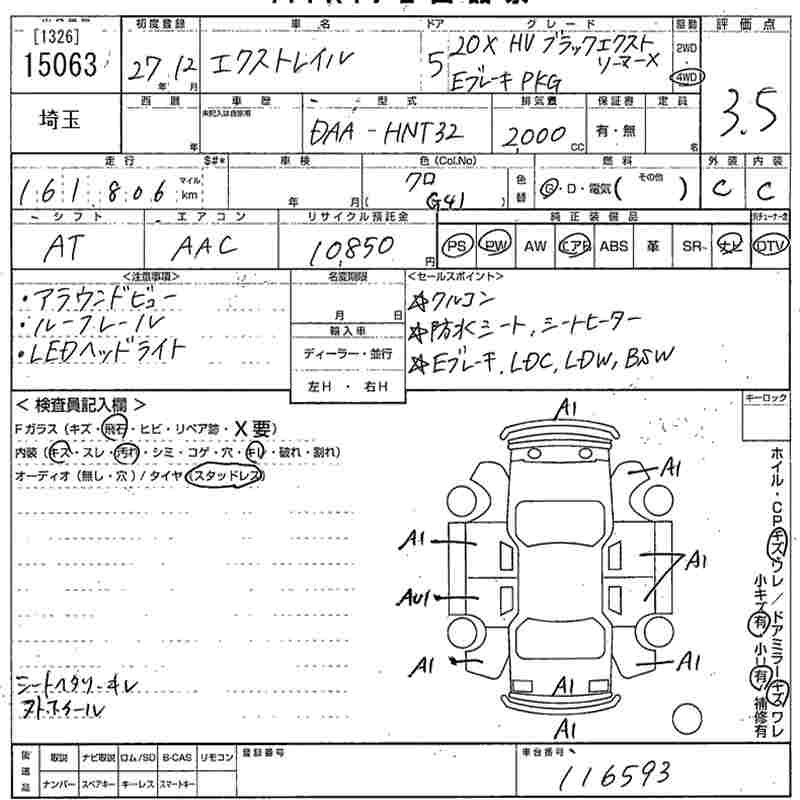 [1326]
15063
埼玉
初度登録 車名 ドア グレード 駆動 評価点
27年12月 エクストレイル 5 20X HV ブラックエクスト
リーマーX
Eブレーキ PKG
2WD
4WD
3.5
西暦 車歴 型式 排気量 保証書 定員
年 未記入は自家用 DAA-HNT32 2,000 CC 有・無 名
走行 $#* 車検 色(Col.No) 燃料 外装 内装
161,806 マイル km 年 月 クロ ( G41 ) 色替 G・D・電気( その他 ) C C
シフト エアコン リサイクル預託金 純正装備品
AT AAC 10,850円 PS PW AW エアB ABS 革 SR ナビ DTV
<注意事項> 名変期限 <セールスポイント>
・アラウンドビュー
・ルーフレール
・LEDヘッドライト
月 日
輸入車
ディーラー・並行
左H・右H
☆クルコン
☆防水シート,シートヒーター
☆Eブレーキ,LDC,LDW,BSW
<検査員記入欄> キーロック
Fガラス(キズ・飛石・ヒビ・リペア跡・X要)
内装(キズ・スレ・汚れ・シミ・コゲ・穴・キレ・破れ・割れ)
オーディオ(無し・穴)/タイヤ(スタッドレス)
A1
A1
A1
A1
AU1
A1
A1
A1
A1
ホイル・CPキズ,ワレ/ドアミラーキズワレ
小キズ有,小U有,補修有
後送品 取説 ナビ取説 ロム/SD B-CAS リモコン
ナンバー スペアキー キーレス スマートキー
登録番号
車台番号
116593